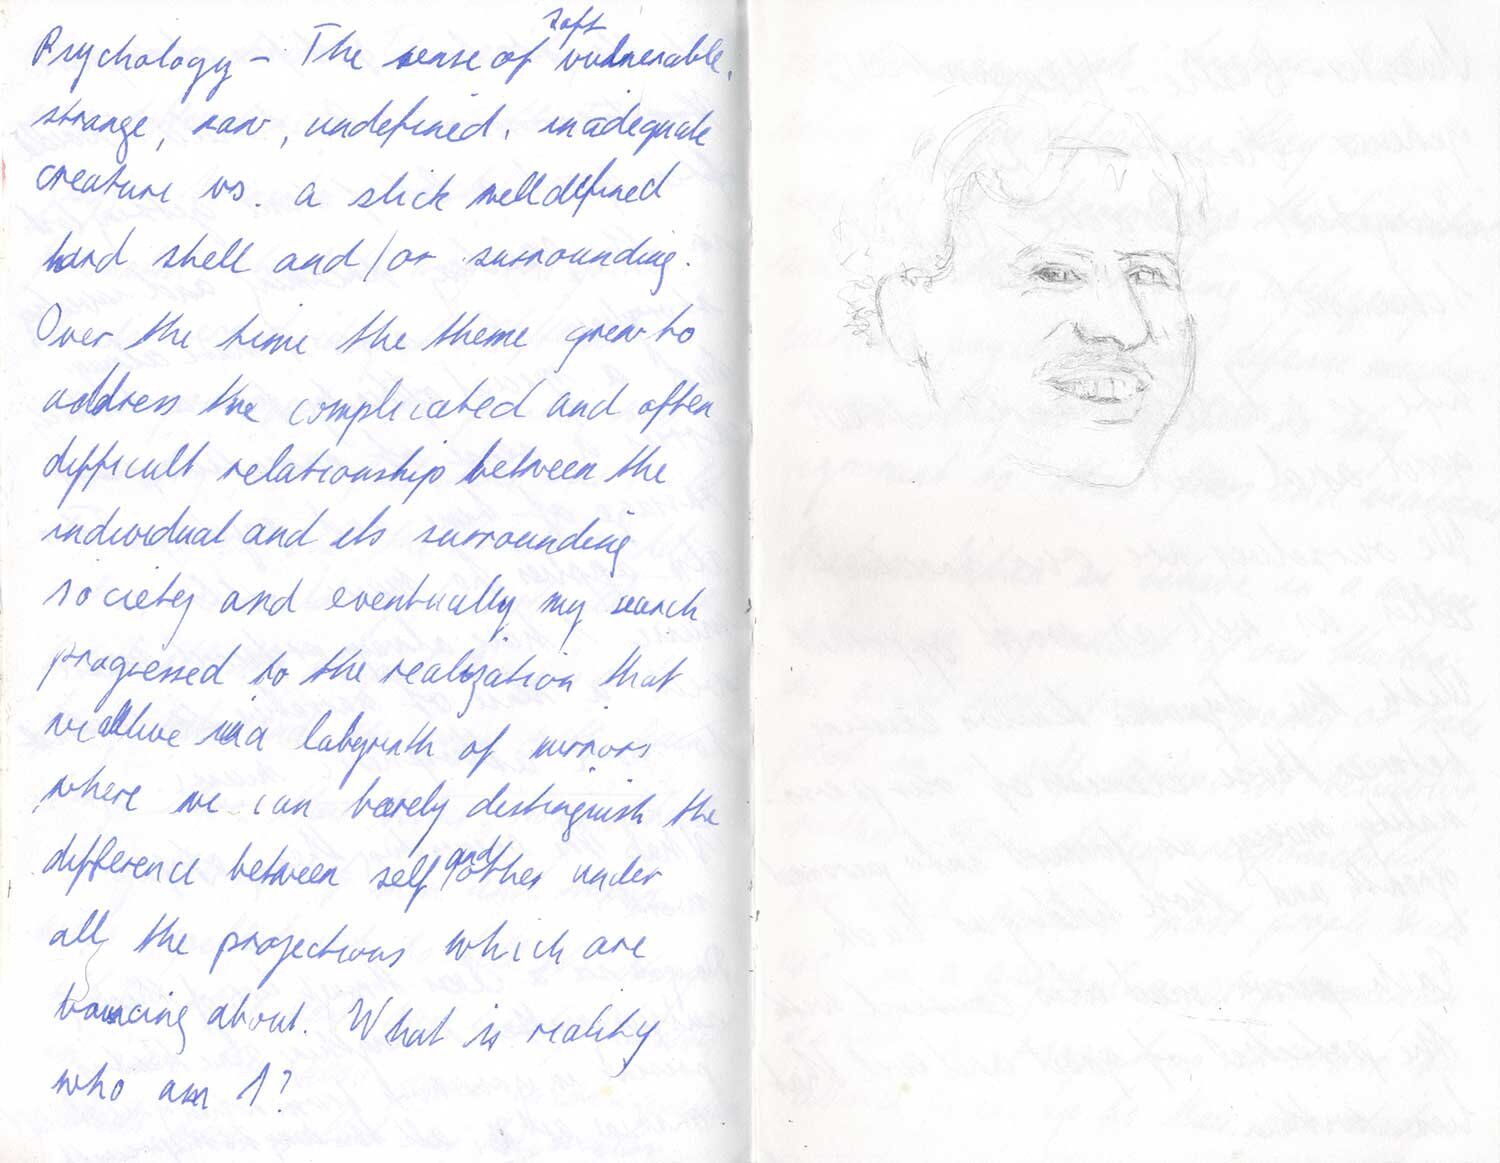 Psychology – The sense of soft vulnerable,
strange, raw, undefined, inadequate
creature vs. a slick welldefined
hard shell and/or surrounding.
Over the time the theme grew to
address the complicated and often
difficult relationship between the
individual and its surrounding
society and eventually my search
progressed to the realization that
we all live in a labyrinth of mirrors
where we can barely distinguish the
difference between self and other under
all the projections which are
bouncing about. What is reality
who am I?